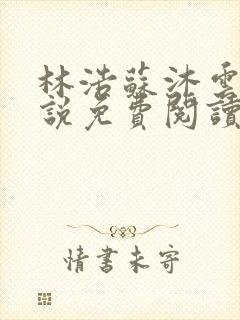 林浩蘇沐雲
說免費閱讀
情書未寄